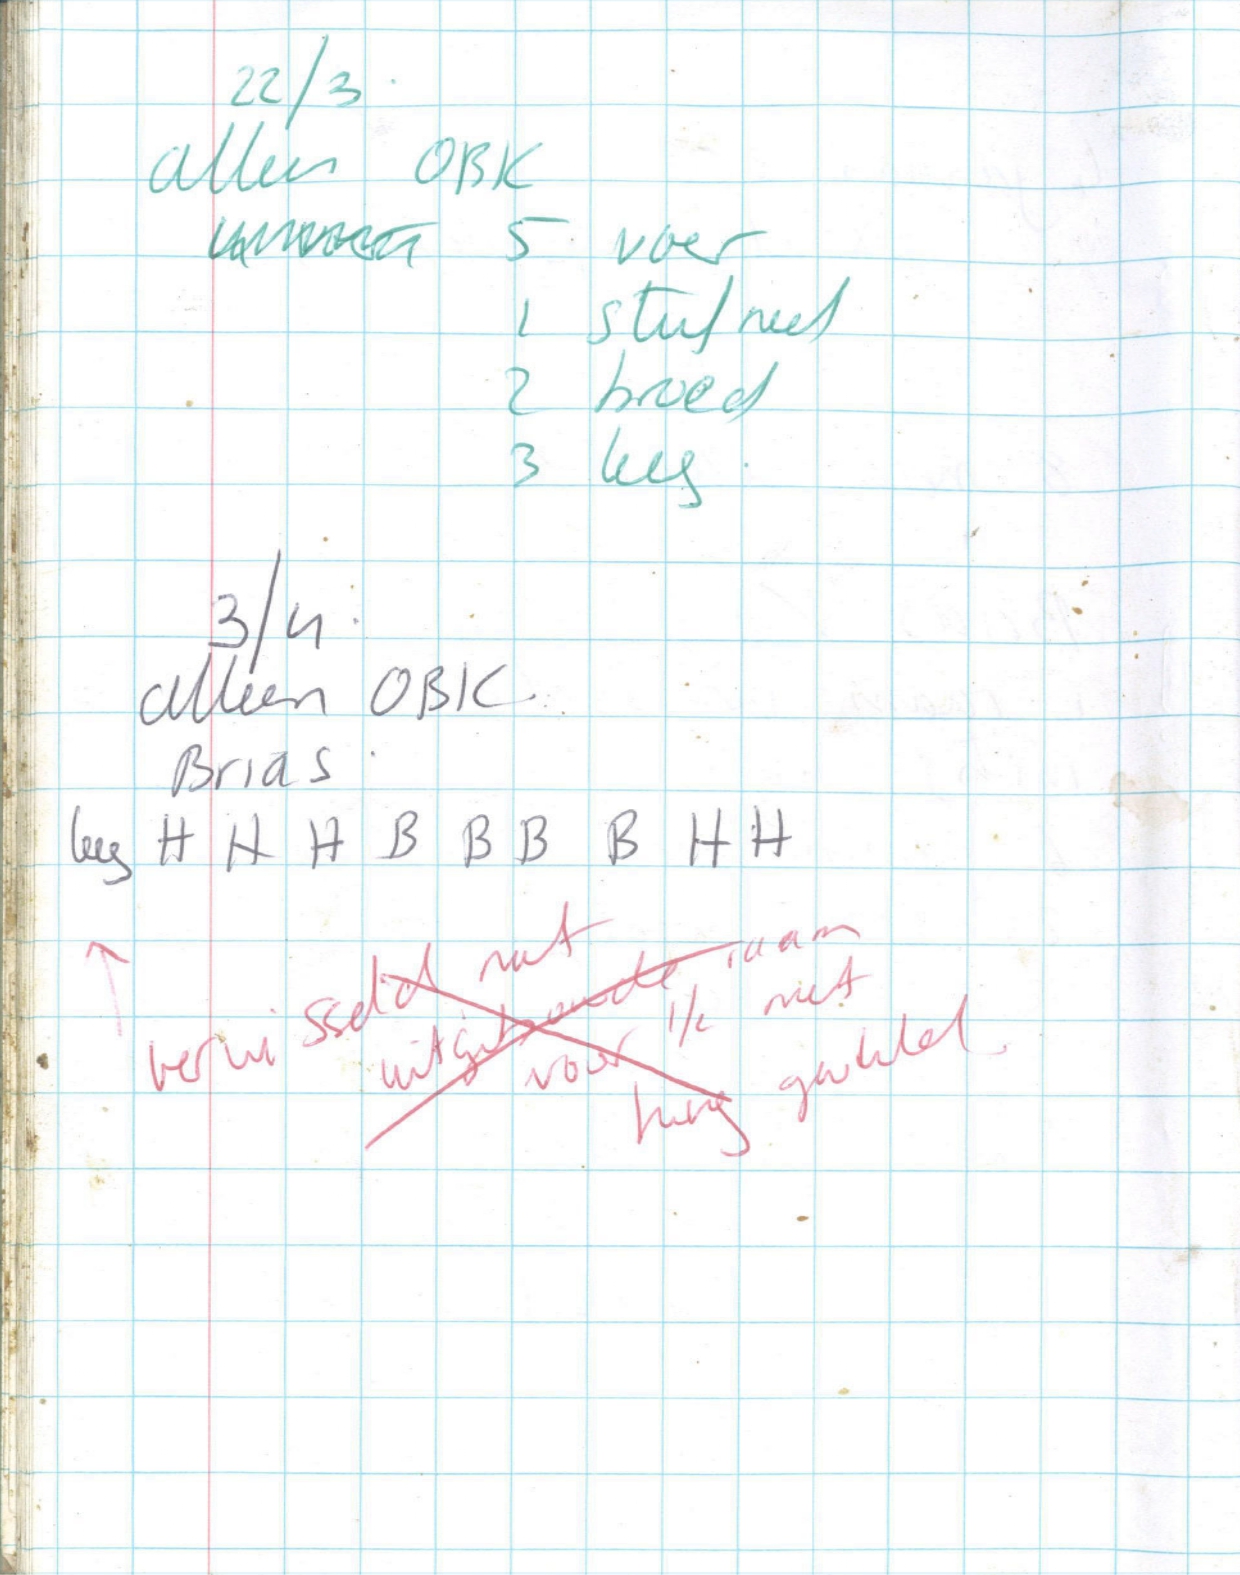 22/3.
alleen OBK
5 voer
1 stuifmeel
2 broed
3 leeg.
3/4.
alleen OBK.
Brias.
leeg H H H B B B B H H
verwisseld met
uitgebouwde raam
voor 1/2 met
honig gevuld.